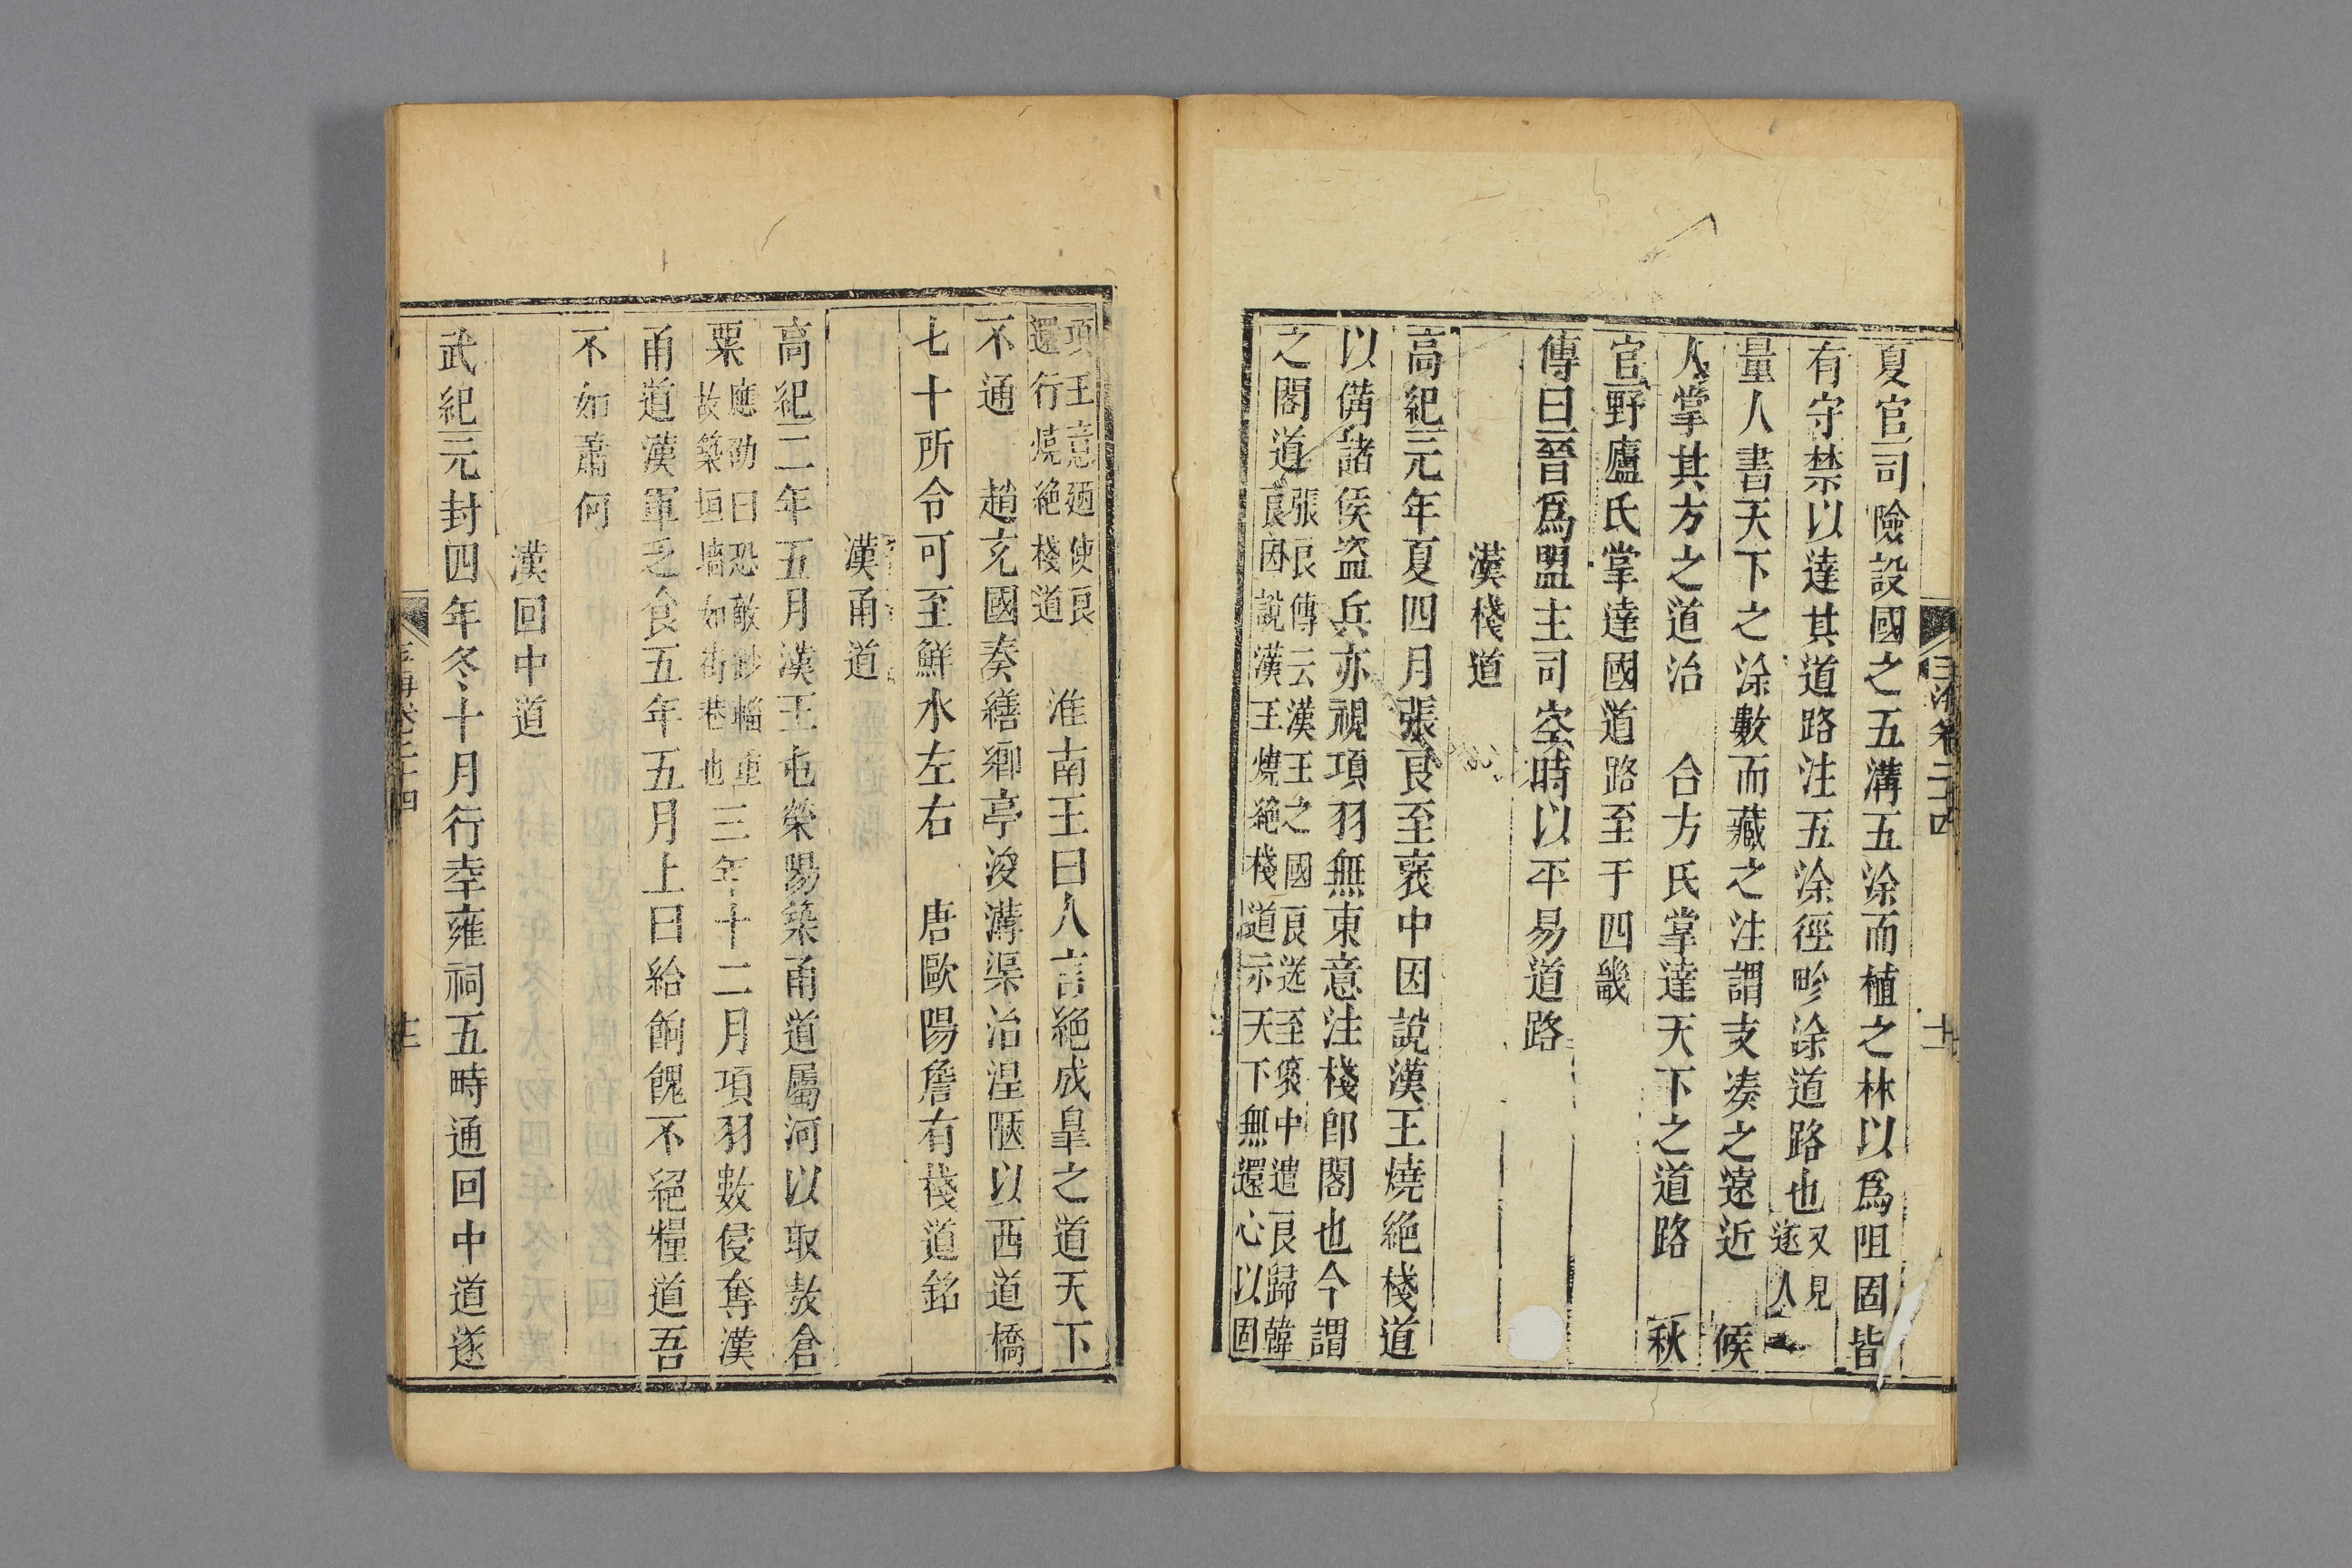 玉海卷二十四
十一
夏官司險設國之五溝五涂而植之林以爲阻固皆
有守禁以達其道路注五涂徑畛涂道路也又見
遂人
量人書天下之涂數而藏之注謂支湊之遠近　候
人掌其方之道治　合方氏掌達天下之道路　秋
官野廬氏掌達國道路至于四畿
傳曰晉爲盟主司空時以平易道路
漢棧道
高紀元年夏四月張良至褒中因說漢王燒絕棧道
以備諸侯盜兵亦視項羽無東意注棧卽閣也今謂
之閣道張良傳云漢王之國良送至襃中遣良歸韓
良因說漢王燒絕棧道示天下無還心以固
項王意廼使良
還行燒絕棧道
淮南王曰人言絕成皐之道天下
不通　趙充國奏繕鄉亭浚溝渠治湟陿以西道橋
七十所令可至鮮水左右　唐歐陽詹有棧道銘
漢甬道
高紀二年五月漢王屯滎陽築甬道屬河以取敖倉
粟應劭曰恐敵鈔輜重
故築垣墻如街巷也三年十二月項羽數侵奪漢
甬道漢軍乏食五年五月上曰給餉餽不絕糧道吾
不如蕭何
漢回中道
武紀元封四年冬十月行幸雍祠五畤通回中道遂